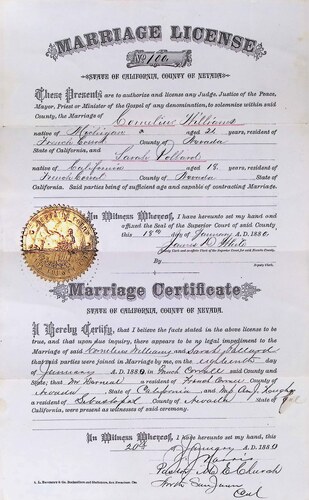 MARRIAGE LICENSE
No. 100
STATE OF CALIFORNIA, COUNTY OF NEVADA.
These Presents, are to authorize and license any Judge, Justice of the Peace,
Mayor, Priest or Minister of the Gospel of any denomination, to solemnize within said
County, the Marriage of Cornelius Williams
native of Michigan aged 21 years, resident of
French Corral County of Nevada
State of California, and Sarah Pollard
native of California aged 18 years, resident of
French Corral County of Nevada State of
California. Said parties being of sufficient age and capable of contracting Marriage.
In Witness Whereof, I have hereunto set my hand and
affixed the Seal of the Superior Court of said County
this 18th day of January A.D. 188
James D. White
By
Deputy Clerk.
Marriage Certificate
STATE OF CALIFORNIA, COUNTY OF NEVADA.
I Hereby Certify, that I believe the facts stated in the above license to be
true, and that upon due inquiry, there appears to be no legal impediment to the
Marriage of said Cornelius Williams and Sarah Pollard
that said parties were joined in Marriage by me, on the eighteenth day
of January A.D. 188 in French Corral said County and
State; that Mr a resident of French Corral County of
Nevada, State of California, and
a resident of Sebastopol County of Nevada State of
California, were present as witnesses of said ceremony.
In Witness Whereof, I have hereunto set my hand, this
20th of January A.D. 188
J. Harris
Pastor M. E. Church
North San Juan
Cal